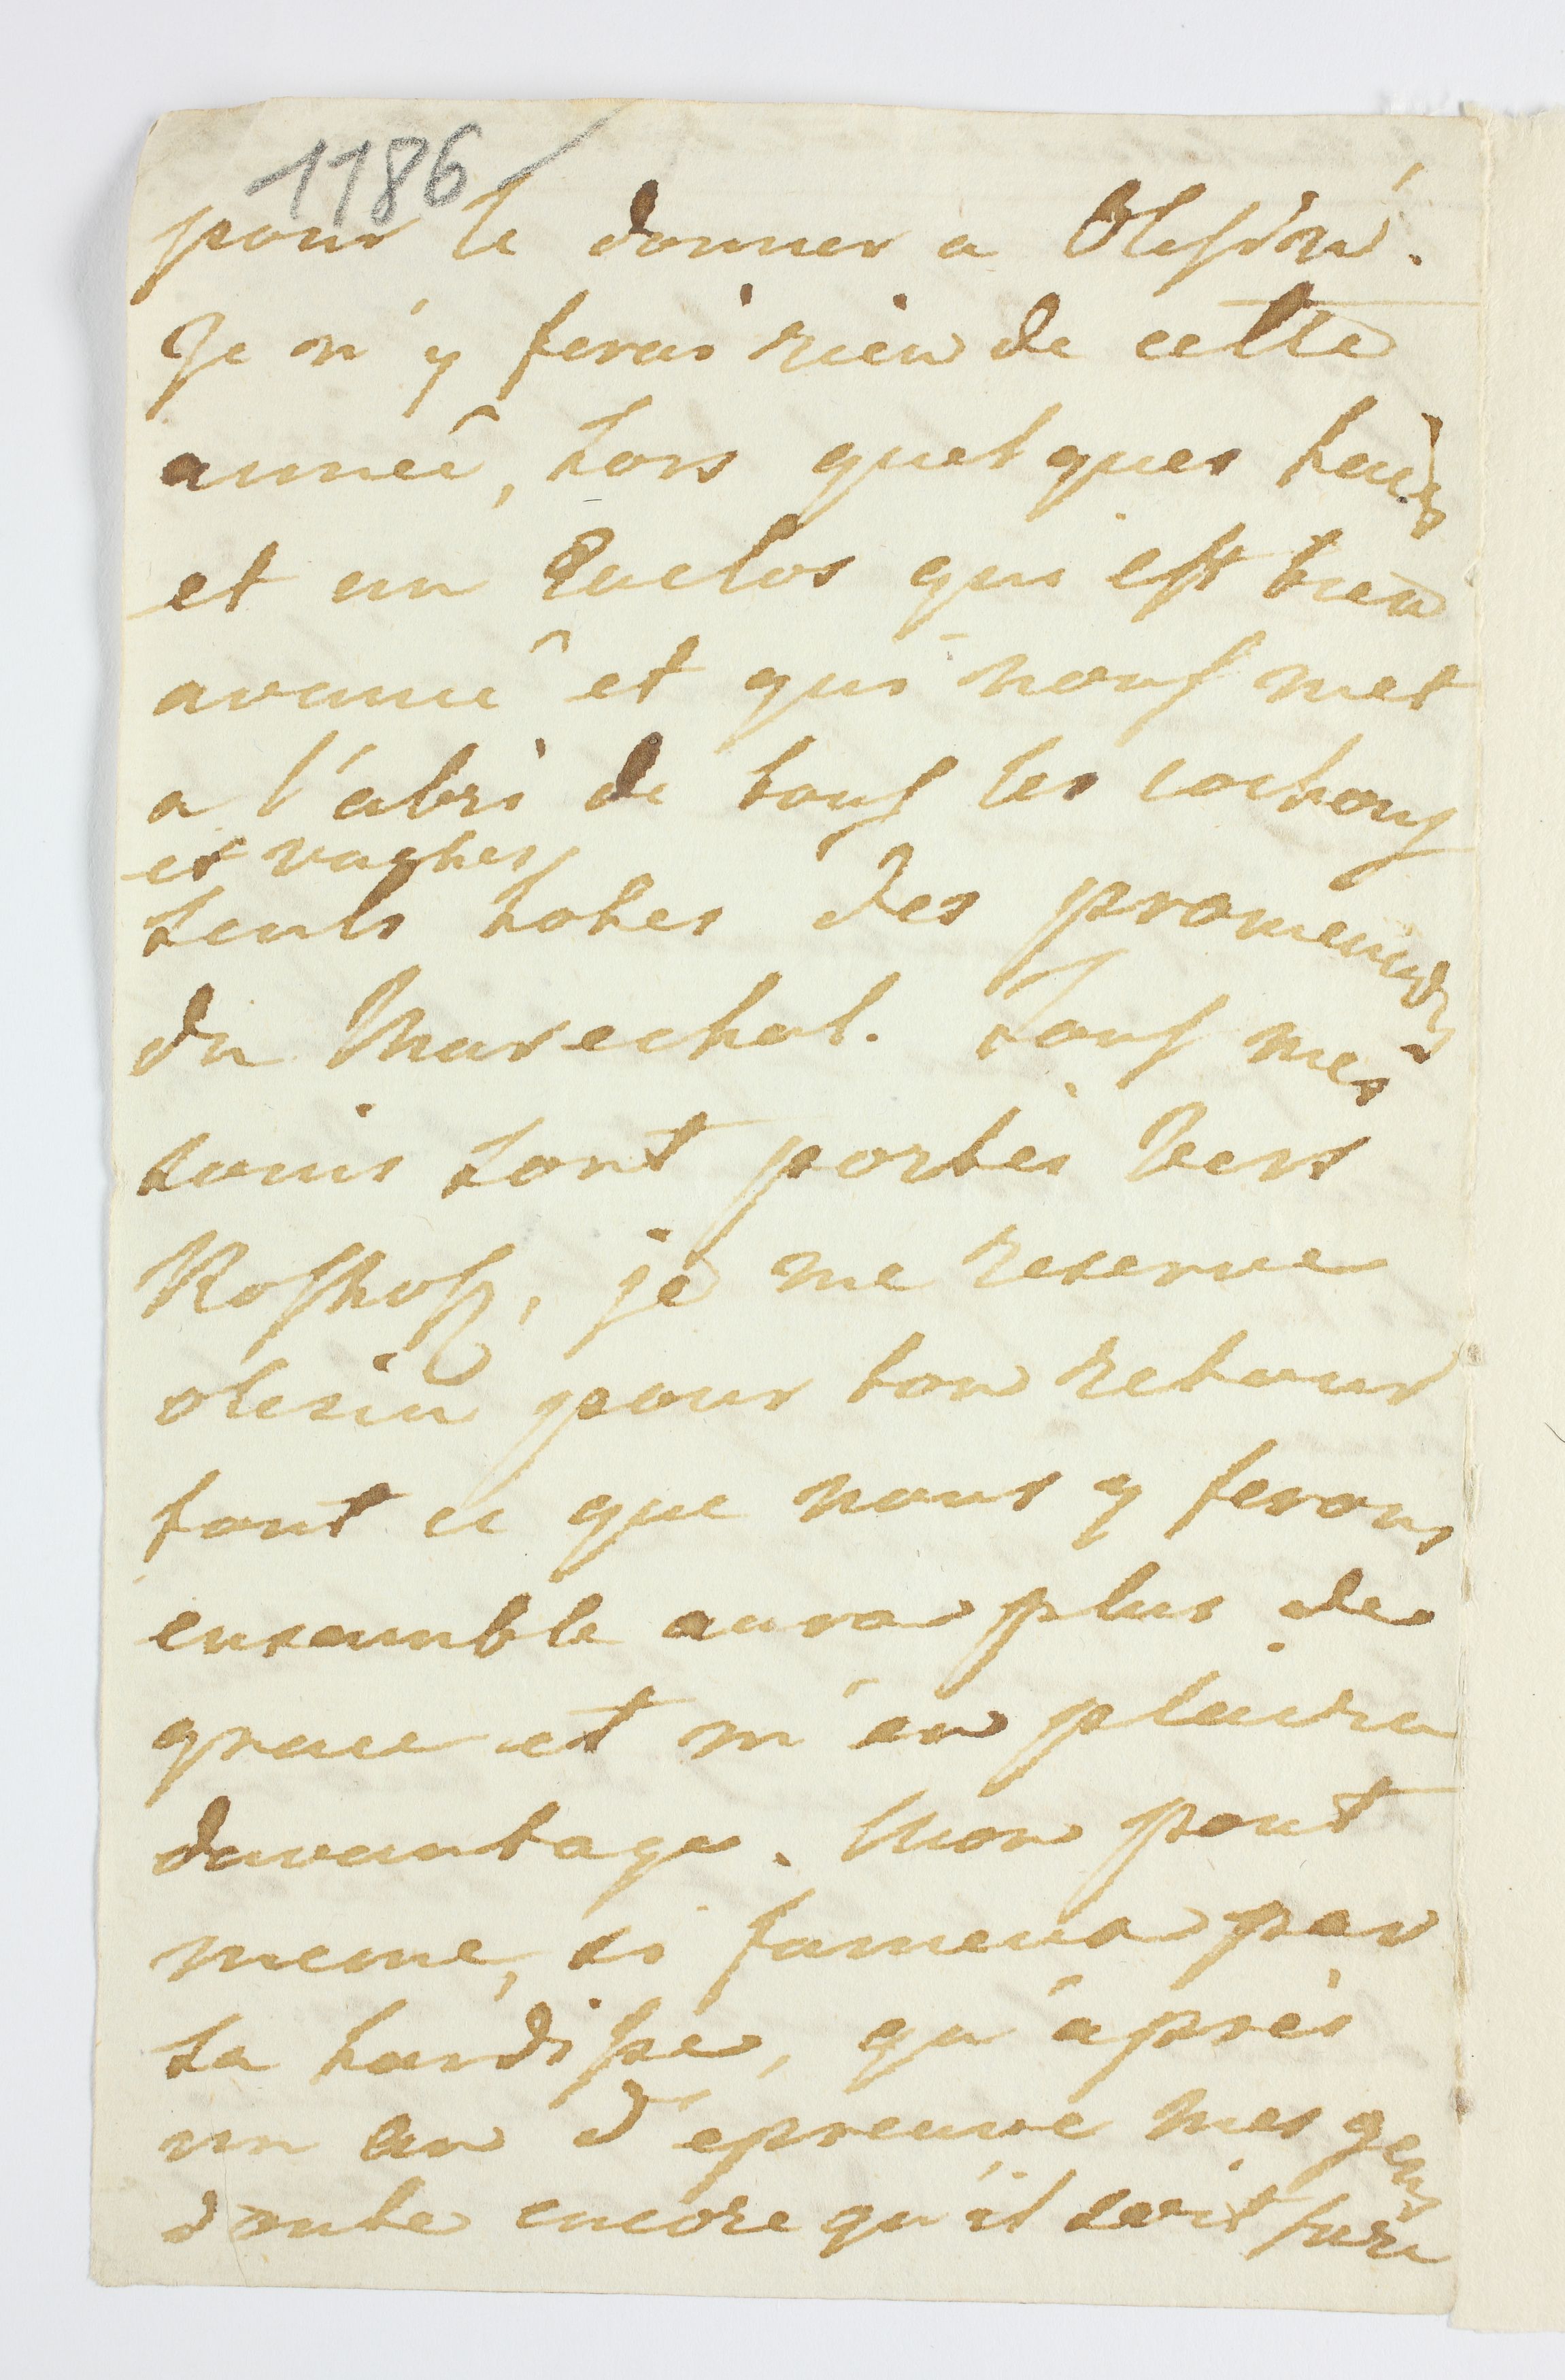 1186
pour le donner a Olesin.
Je n'y ferai rien de cette
anneê, hors quelques
et un Enclos qui est bien
avancê et qui nous met
a l'abri de tous les cochons
et vaches
seuls hotes des promenades
du Marechal. Tous mes
soins sont portés vers
je me reserve
olesin pour ton retour
tout ce que nous y ferons
ensemble aura plus de
grace et m'en plaira
davantage. Mon pont
meme, si fameux par
sa hardiesse, qu'après
un an d'epreuve mes gens
doute encore qu'il soit sure